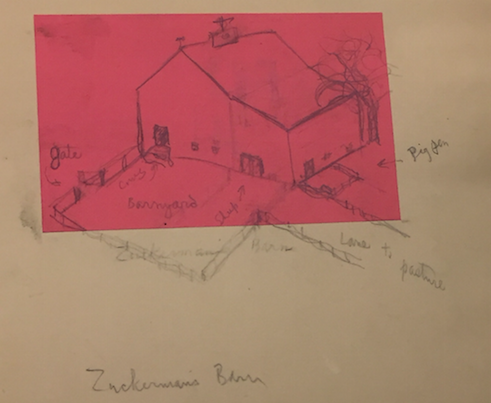 gate
Pig pen
Cows
Barnyard
Sheep
Zuckerman's Barn
Lane to
pasture
Zuckerman's Barn